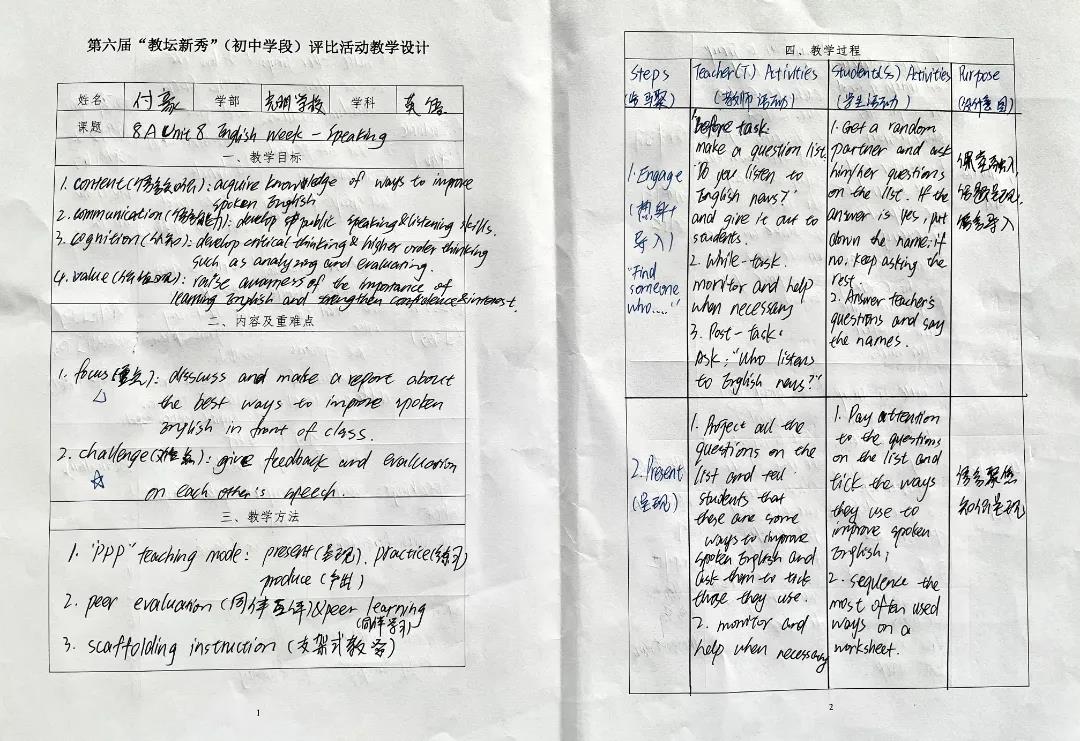 第六届“教坛新秀”（初中学段）评比活动教学设计
姓名 付豪 学部 光明学校 学科 英语
课题 8A Unit 8 English Week - Speaking
一、教学目标
1. content(语言知识): acquire knowledge of ways to improve
spoken English
2. communication(语言能力): develop public speaking & listening skills.
3. cognition(认知): develop critical thinking & higher order thinking
such as analyzing and evaluating.
4. value(价值观): raise awarness of the importance of
learning English and strengthen confidence & interest.
二、内容及重难点
1. focus(重点): disscuss and make a report about
the best ways to improve spoken
English in front of class.
2. challenge(难点): give feedback and evaluation
on each other's speech.
三、教学方法
1. "PPP" teaching mode: present(呈现), practice(练习)
produce (产出)
2. peer evaluation (同伴互评) & peer learning
(同伴学习)
3. scaffolding instruction (支架式教学)
1
四、教学过程
Steps Teacher(T) Activities Student(s) Activities Purpose
(步骤) (教师活动) (学生活动) (设计意图)
1. Engage
(热身+
导入)
"Find
someone
who...."
1. before task
make a question list
"Do you listen to
English news?"
and give it out to
students.
2. While-task.
monitor and help
when necessary
3. Post-task:
Ask: "Who listens
to English news?"
1. Get a random
partner and ask
him/her questions
on the list. If the
answer is yes, put
down the name; if
no, keep asking the
rest.
2. Answer teacher's
questions and say
the names.
课堂融入,
话题呈现,
语言导入
2. Present
(呈现)
1. Project all the
questions on the
list and tell
students that
these are some
ways to improve
spoken English and
ask them to tick
those they use.
2. monitor and
help when necessary
1. Pay attention
to the questions
on the list and
tick the ways
they use to
improve spoken
English;
2. sequence the
most often used
ways on a
worksheet.
语言聚焦
知识呈现
2